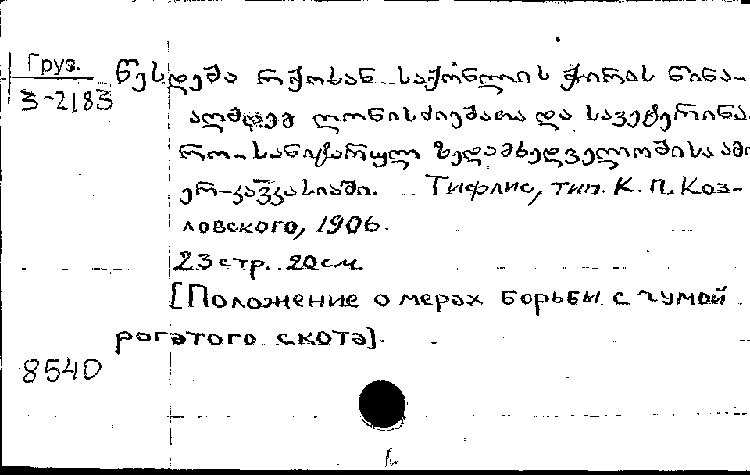 Груз.
3-2183
წესდება რქოსან საქონლის ჭირის წინა-
აღმდეგ ღონისძიებათა და სავეტერინა
რო-სანიტარულ ზედამხედველობისა ამი
ერ-კავკასიაში. Тифлис, тип. К. П. Коз-
ловского, 1906.
23 стр. 20 см.
[Положение о мерах борьбы с чумой
рогатого скота].
8540